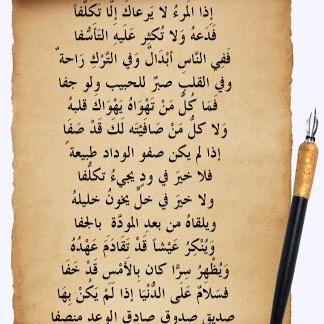 إذا المرءُ لا يَرعاكَ إلّا تكلُّفاً
فَدَعهُ وَلا تُكثِر عَلَيهِ التَأَسُّفا
فَفِي النَّاسِ أبْدَالٌ وَفي التَّرْكِ رَاحة ٌ
وفي القلبِ صبرٌ للحبيب ولو جفا
فَمَا كُلُّ مَنْ تَهْوَاهُ يَهْوَاكَ قلبهُ
وَلا كلُّ مَنْ صَافَيْتَه لَكَ قَدْ صَفَا
إذا لم يكن صفو الوداد طبيعة ً
فلا خيرَ في ودٍ يجيءُ تكلُّفا
ولا خيرَ في خلٍّ يخونُ خليلهُ
ويلقاهُ من بعدِ المودَّة ِ بالجفا
وَيُنْكِرُ عَيْشاً قَدْ تَقَادَمَ عَهْدُهُ
وَيُظْهِرُ سِرًّا كان بِالأَمْسِ قَدْ خَفَا
فسَلامٌ عَلَى الدُّنْيَا إذا لَمْ يَكُنْ بِهَا
صديق صدوق صادق الوعد منصفا